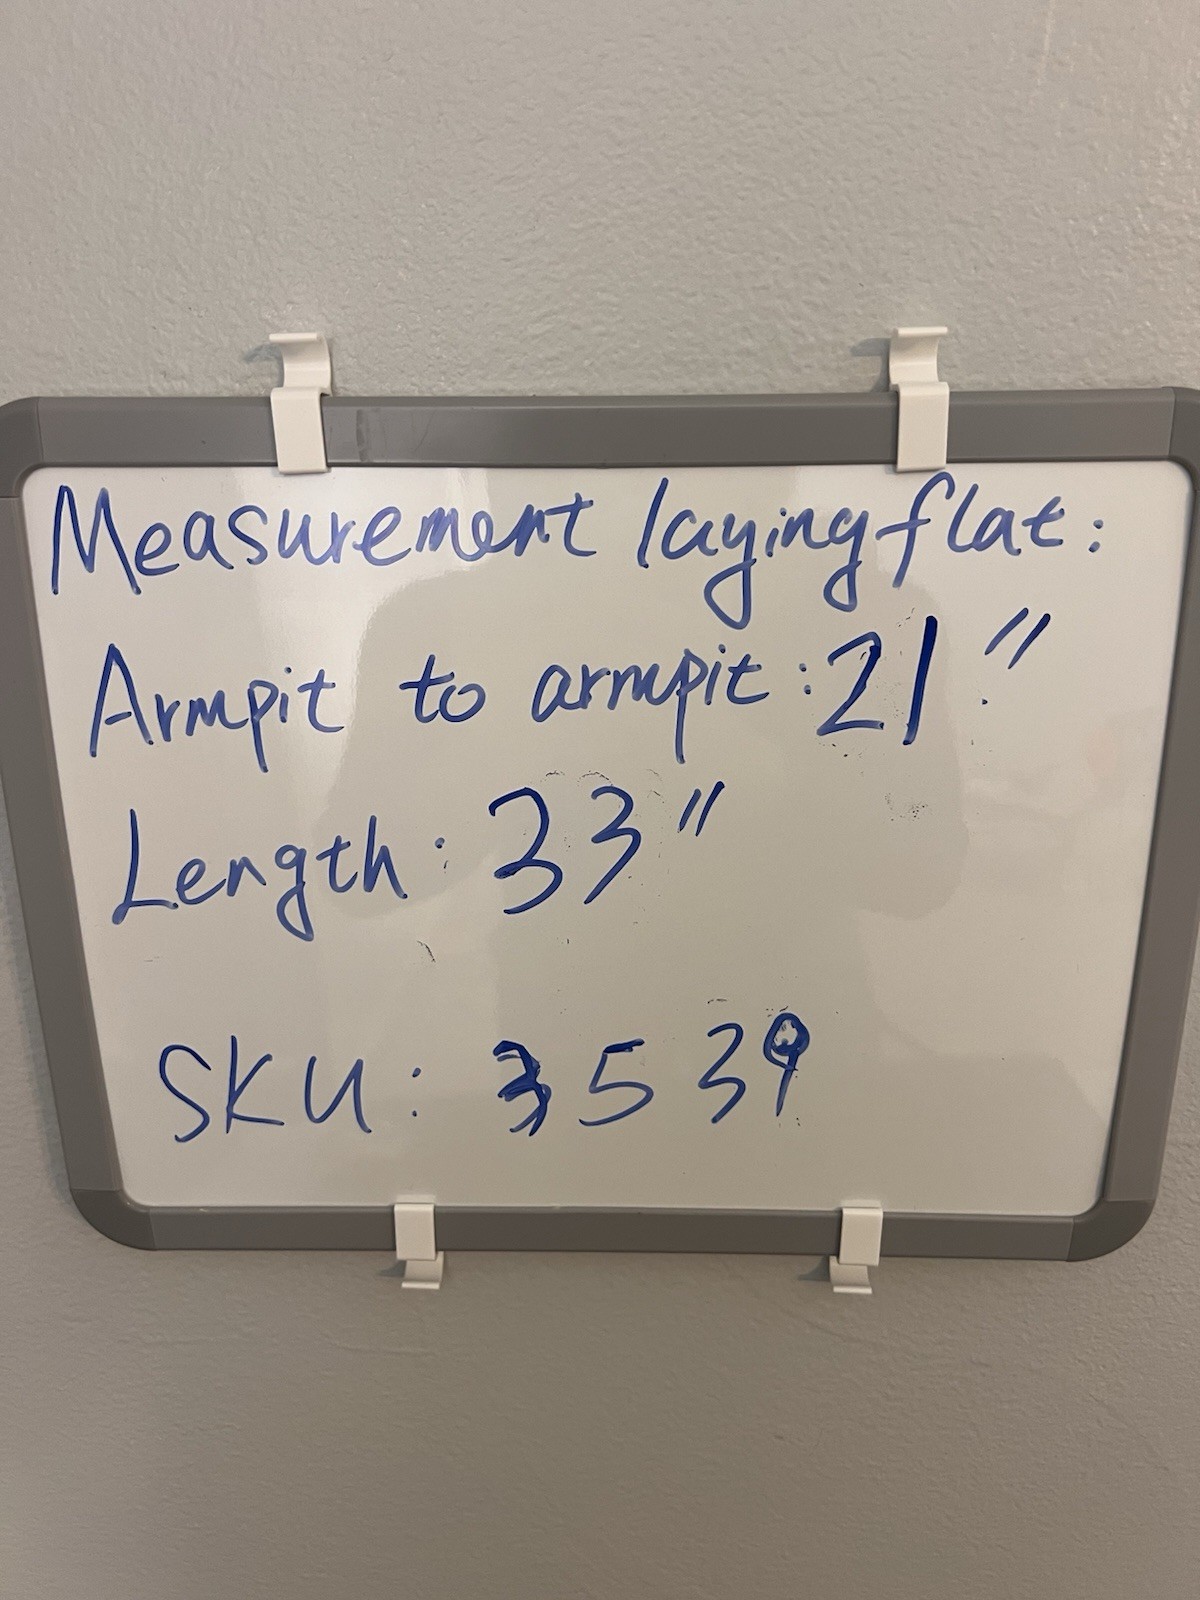 Measurement laying flat:
Armpit to armpit: 21"
Length: 33"
SKU: 3539